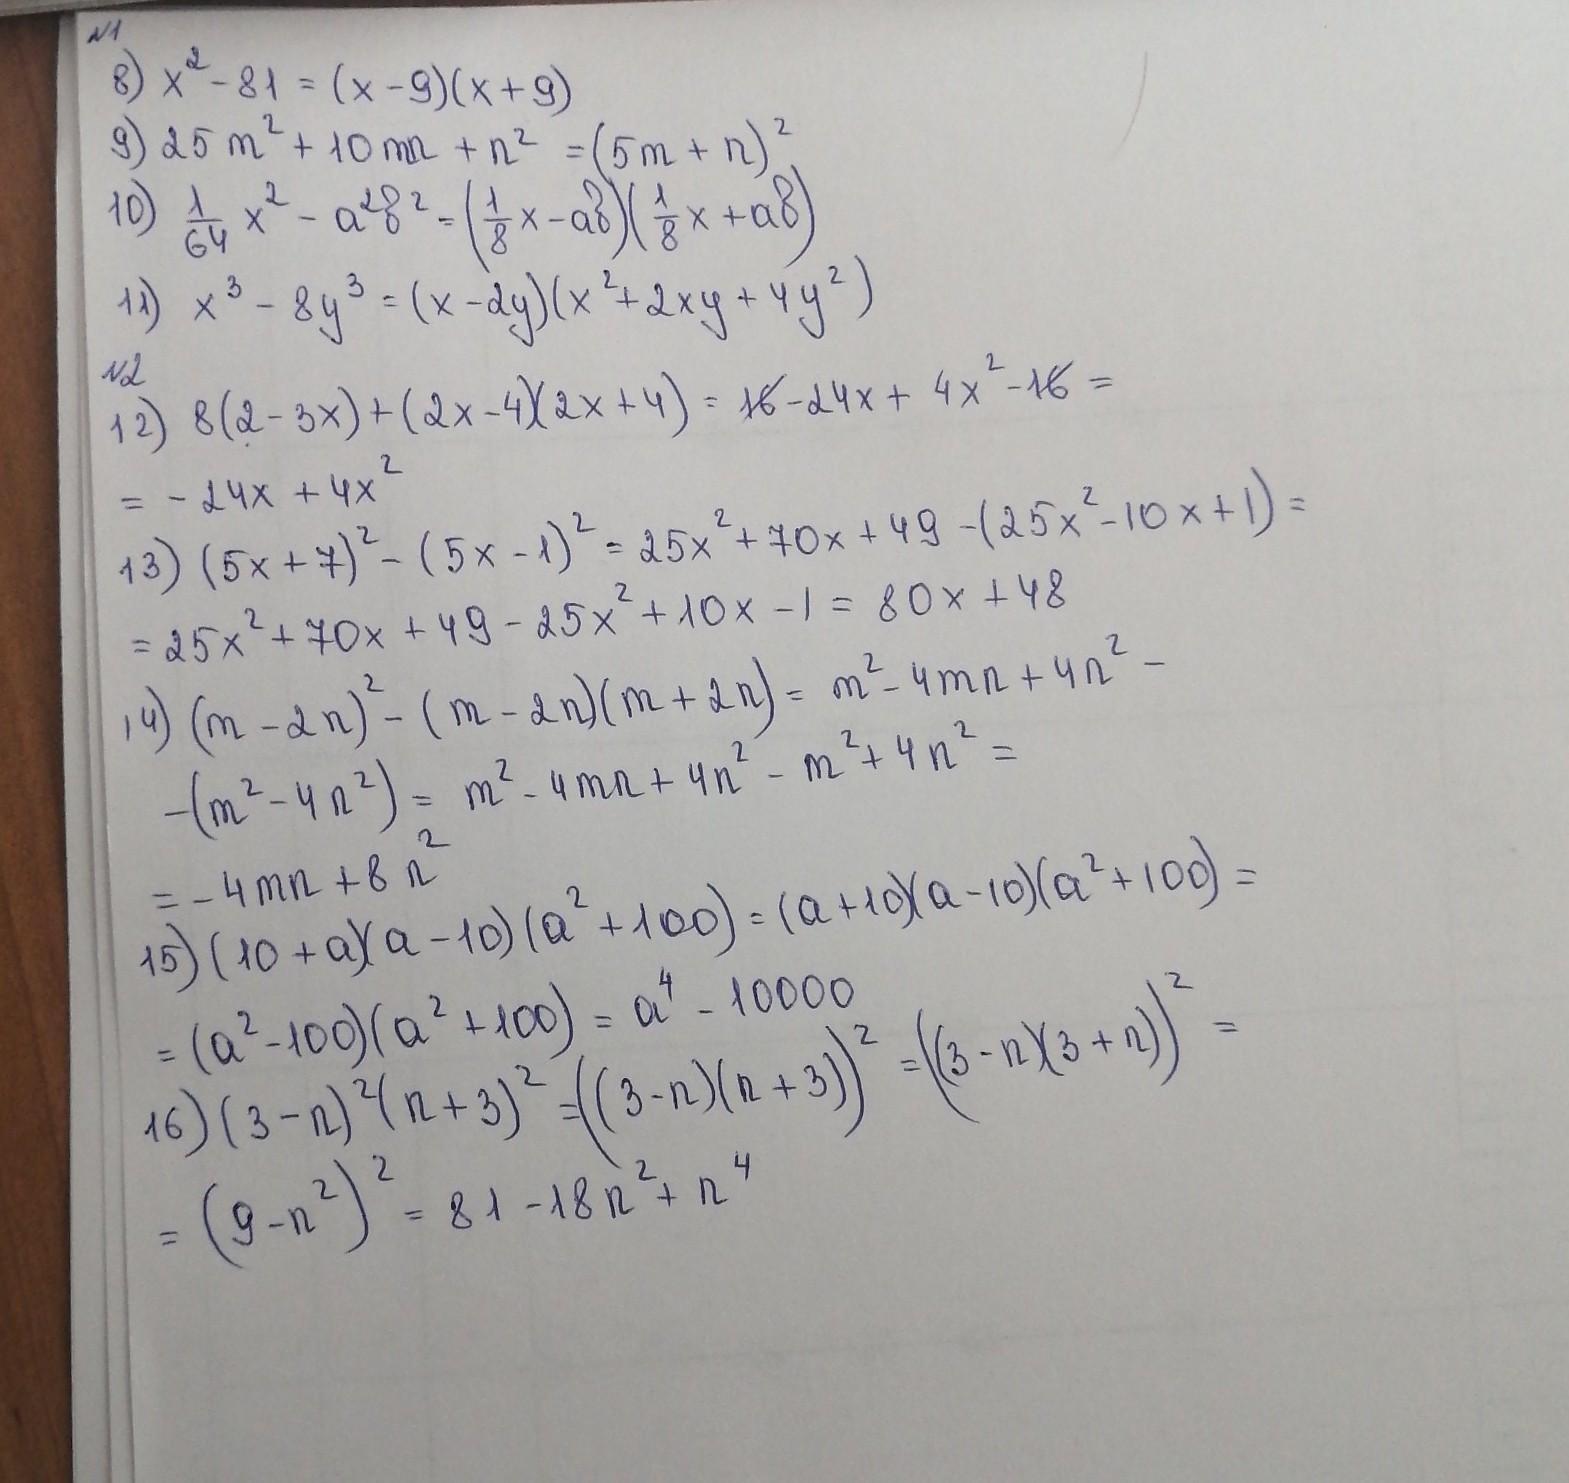 №1
8) x² - 81 = (x - 9)(x + 9)
9) 25m² + 10mn + n² = (5m + n)²
10) 1/64 x² - a²b² = (1/8 x - ab)(1/8 x + ab)
11) x³ - 8y³ = (x - 2y)(x² + 2xy + 4y²)
№2
12) 8(2 - 3x) + (2x - 4)(2x + 4) = 16 - 24x + 4x² - 16 =
= - 24x + 4x²
13) (5x + 7)² - (5x - 1)² = 25x² + 70x + 49 - (25x² - 10x + 1) =
= 25x² + 70x + 49 - 25x² + 10x - 1 = 80x + 48
14) (m - 2n)² - (m - 2n)(m + 2n) = m² - 4mn + 4n² -
- (m² - 4n²) = m² - 4mn + 4n² - m² + 4n² =
= - 4mn + 8n²
15) (10 + a)(a - 10)(a² + 100) = (a + 10)(a - 10)(a² + 100) =
= (a² - 100)(a² + 100) = a⁴ - 10000
16) (3 - n)²(n + 3)² = ((3 - n)(n + 3))² = ((3 - n)(3 + n))² =
= (9 - n²)² = 81 - 18n² + n⁴